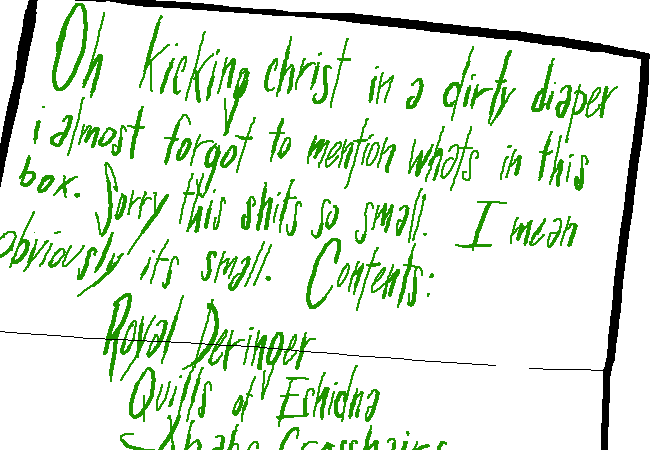 Oh kicking christ in a dirty diaper
i almost forgot to mention whats in this
box. Sorry this shits so small. I mean
obviously its small. Contents:
Royal Deringer
Quills of Echidna
Crosshairs